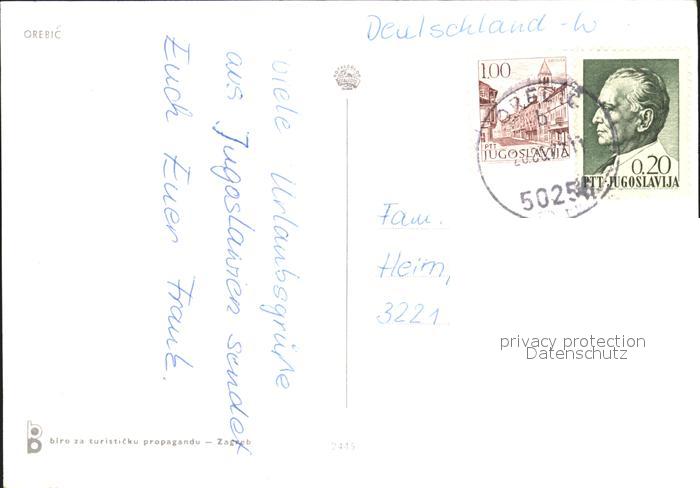 OREBIĆ
Deutschland - W
viele Urlaubsgrüße
aus Jugoslawien sendet
Euch Euer Frank.
1.00
PTT
JUGOSLAVIJA
0,20
PTT-JUGOSLAVIJA
OREBIĆ
b
50254
Fam.
Heim,
3221
privacy protection
Datenschutz
biro za turističku propagandu — Zagreb
2445